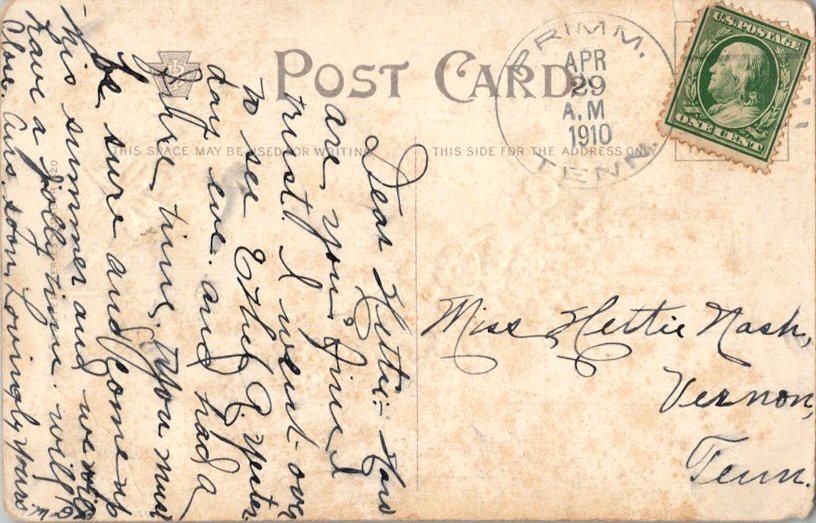 POST CARD
THIS SPACE MAY BE USED FOR WRITING
THIS SIDE FOR THE ADDRESS ONLY
PRIMM.
APR
29
A.M
1910
TENN.
U.S. POSTAGE
ONE CENT
Dear Hettie:- How
are you? Fine I
trust. I went over
to see Ethel P. yester
day eve. and had a
fine time. You must
be sure and come up
this summer and we will
have a jolly time. will
Close. Ans. soon, Lovingly yours
Miss Hettie Nash,
Vernon,
Tenn.